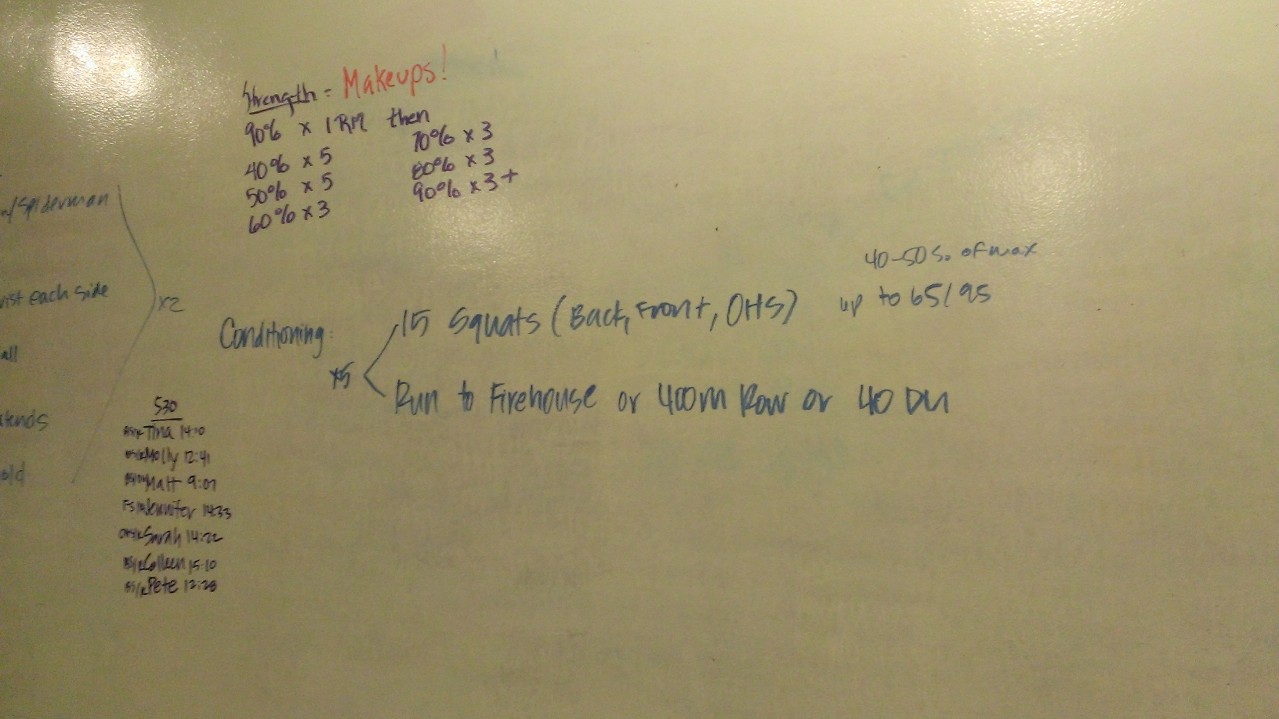 Strength: Makeups!
90% x 1RM then
40% x 5
50% x 5
60% x 3
70% x 3
80% x 3
90% x 3+
w/Spiderman
each side
x2
all
old
Conditioning:
x5
15 Squats (Back, Front, OHS)
40-50% of max
up to 65/95
Run to Firehouse or 400m Row or 40 DU
530
Tina 14:10
Molly 12:41
Matt 9:07
FS/R Jennifer 14:33
Sarah 14:22
Colleen 15:10
BS/R Pete 12:28